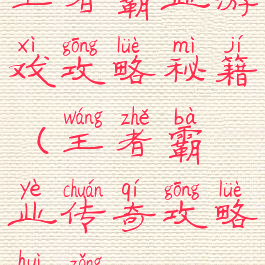 王者霸业游
xì gōng lüè mì jí
戏攻略秘籍
wáng zhě bà
(王者霸
yè chuán qí gōng lüè
业传奇攻略
huì zǒng